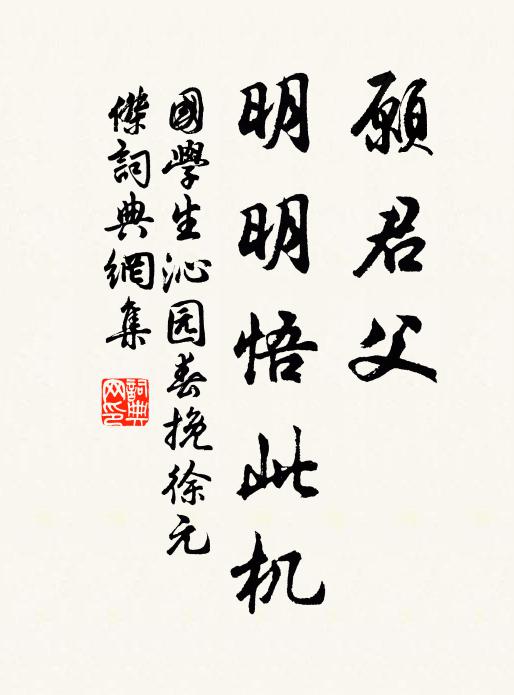 願君父
明明悟此机
國學生沁园春挽徐元
傑詞典網集
詞典网印